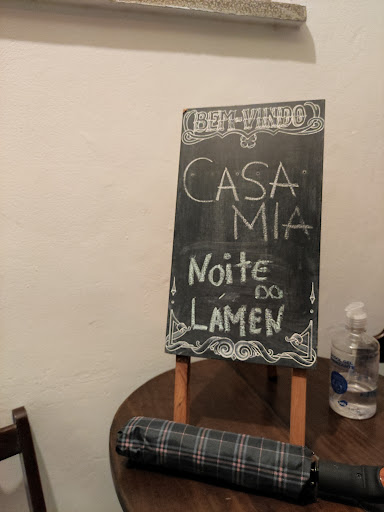 BEM-VINDO
CASA
MIA
NOITE
DO
LÁMEN